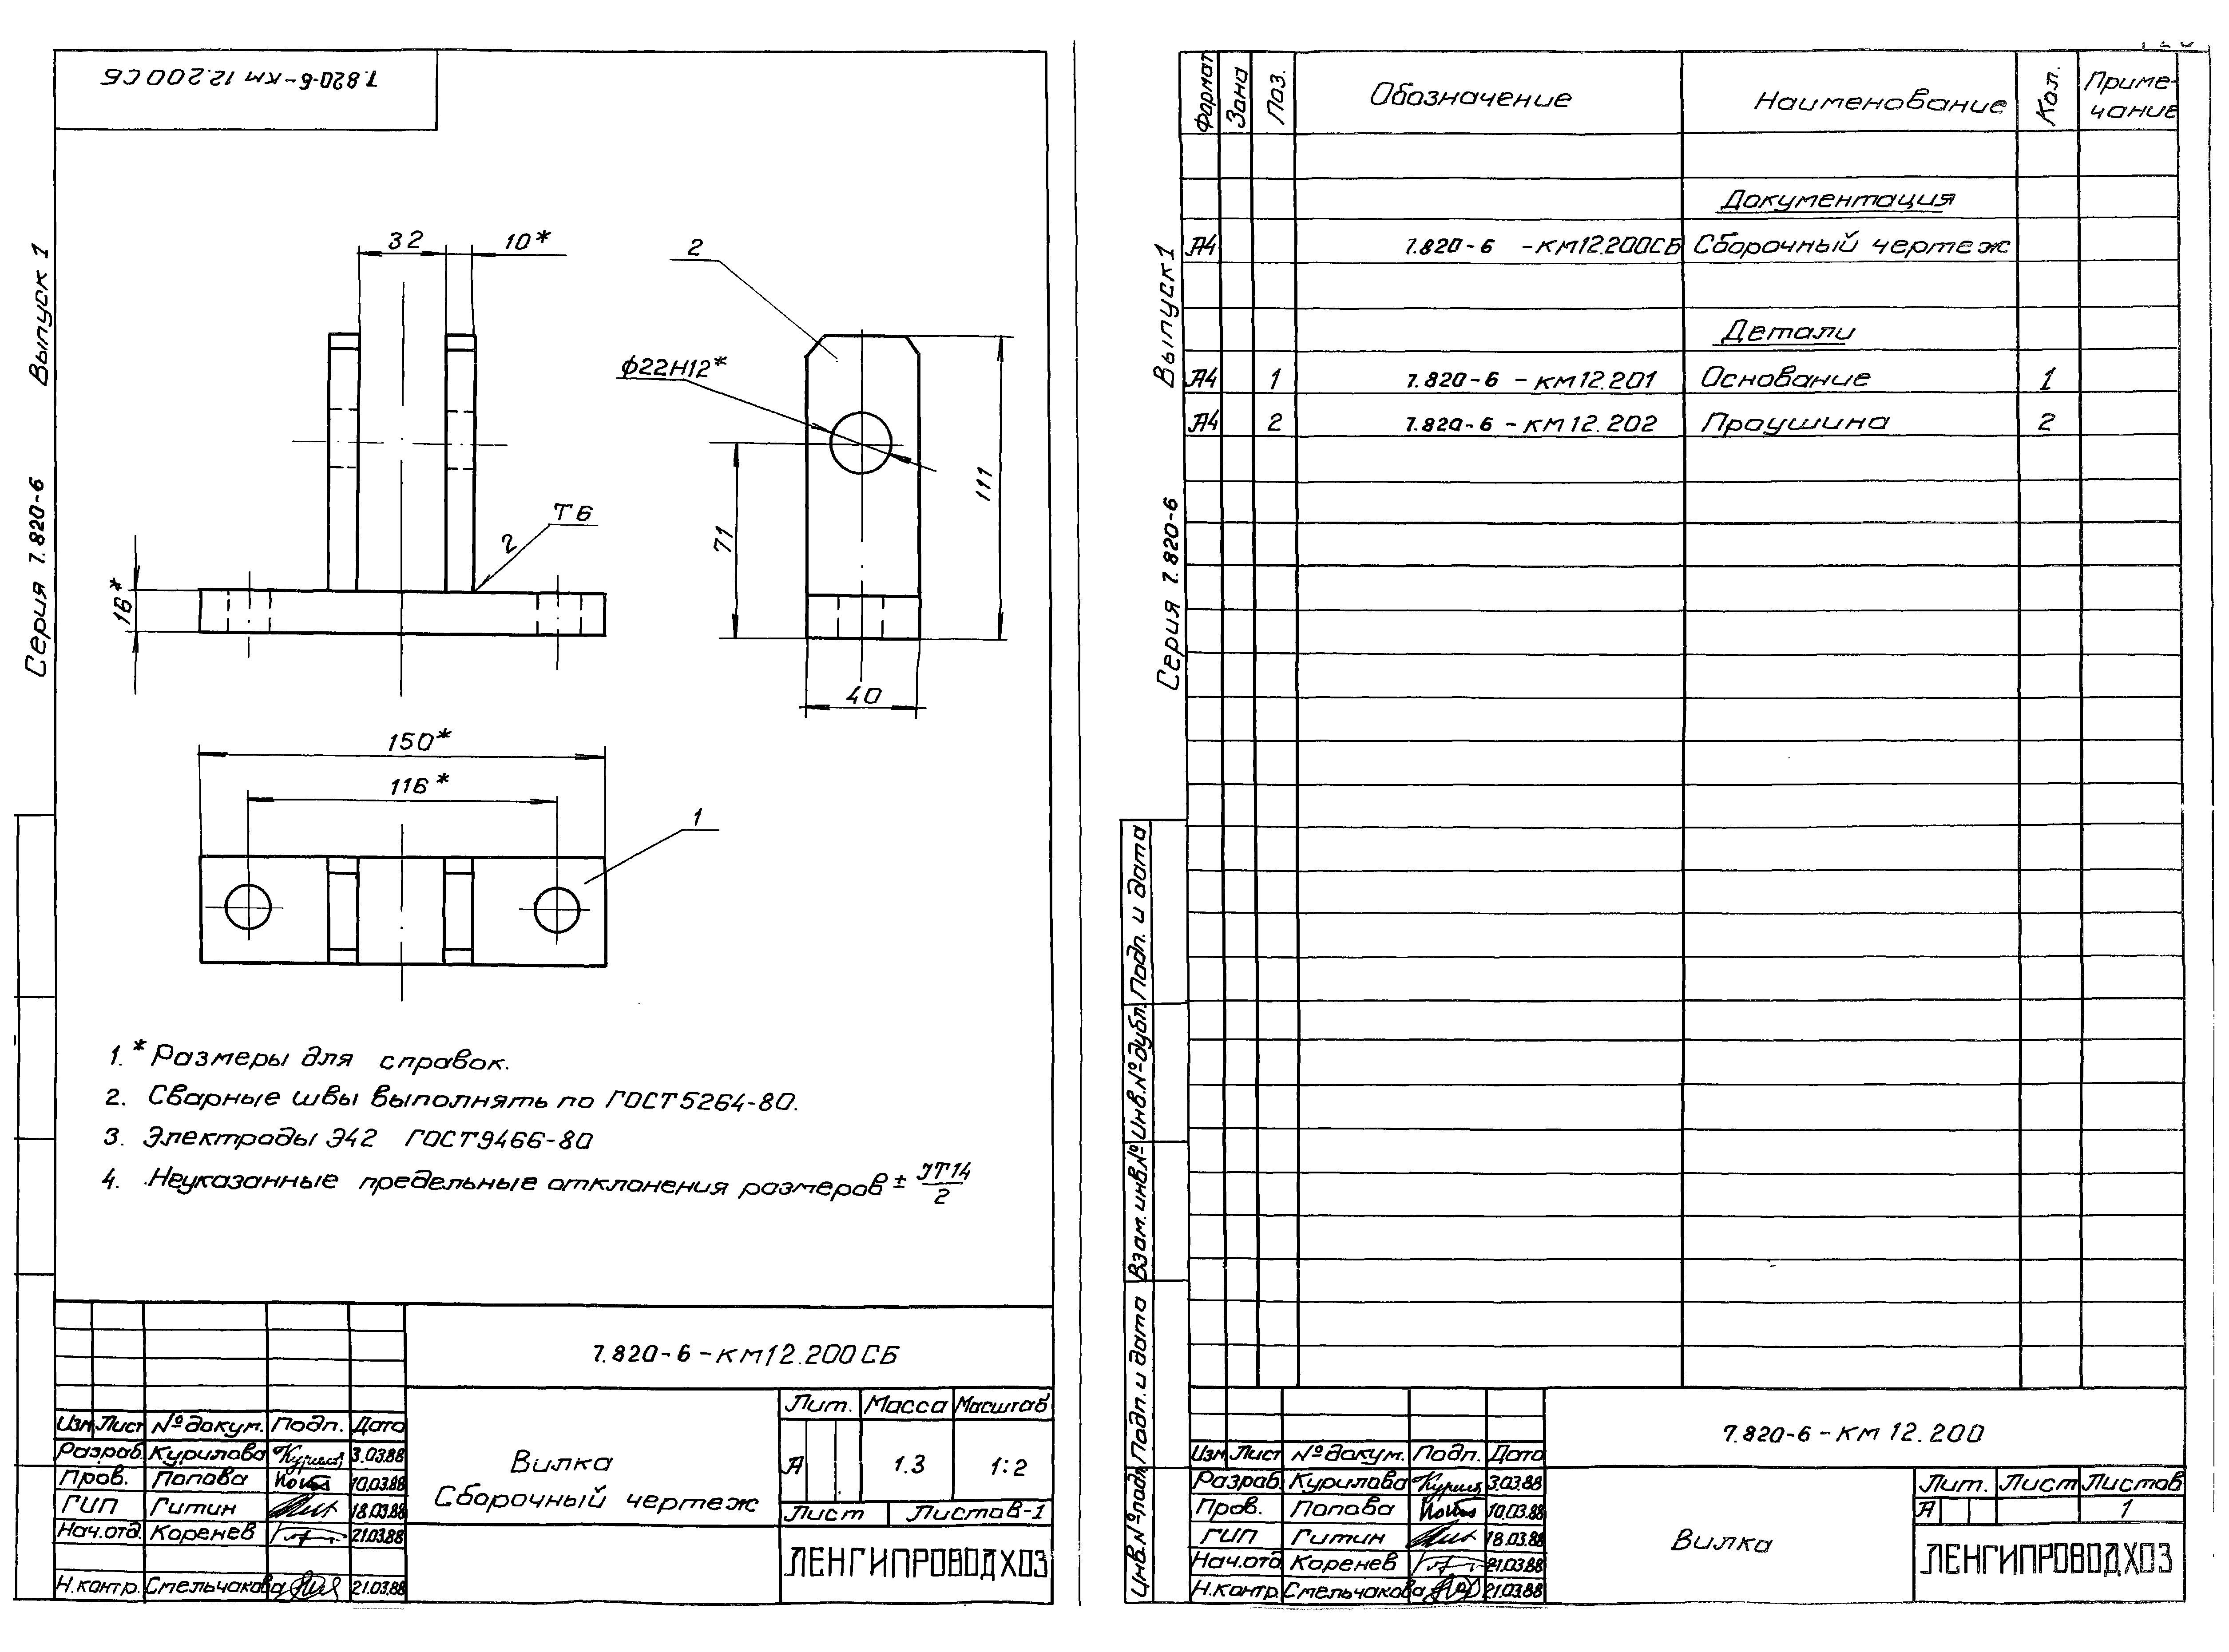 7.820-6-КМ 12.200СБ
Серия 7.820-6 Выпуск 1
32
10*
2
Ф22Н12*
Т6
2
16*
71
111
40
150*
116*
1
1. * Размеры для справок.
2. Сварные швы выполнять по ГОСТ 5264-80.
3. Электроды Э42 ГОСТ 9466-80
4. Неуказанные предельные отклонения размеров ± JT14/2
7.820-6-КМ12.200СБ
Изм Лист № докум. Подп. Дата
Разраб. Курилова 3.03.88
Пров. Попова 10.03.88
ГИП Гитин 18.03.88
Нач.отд. Коренев 21.03.88
Н.контр. Смельчакова 21.03.88
Вилка
Сборочный чертеж
Лит. Масса Масштаб
А 1.3 1:2
Лист Листов-1
ЛЕНГИПРОВОДХОЗ
Серия 7.820-6 Выпуск 1
Формат Зона Поз. Обозначение Наименование Кол. Приме-
чание
Документация
А4 7.820-6 -КМ12.200СБ Сборочный чертеж
Детали
А4 1 7.820-6 -КМ12.201 Основание 1
А4 2 7.820-6 -КМ12.202 Проушина 2
Инв.№ подл. Подп. и дата Взам.инв.№ Инв.№ дубл. Подп. и дата
7.820-6-КМ 12.200
Изм Лист № докум. Подп. Дата
Разраб. Курилова 3.03.88
Пров. Попова 10.03.88
ГИП Гитин 18.03.88
Нач.отд Коренев 21.03.88
Н.контр. Смельчакова 21.03.88
Вилка
Лит. Лист Листов
А 1
ЛЕНГИПРОВОДХОЗ